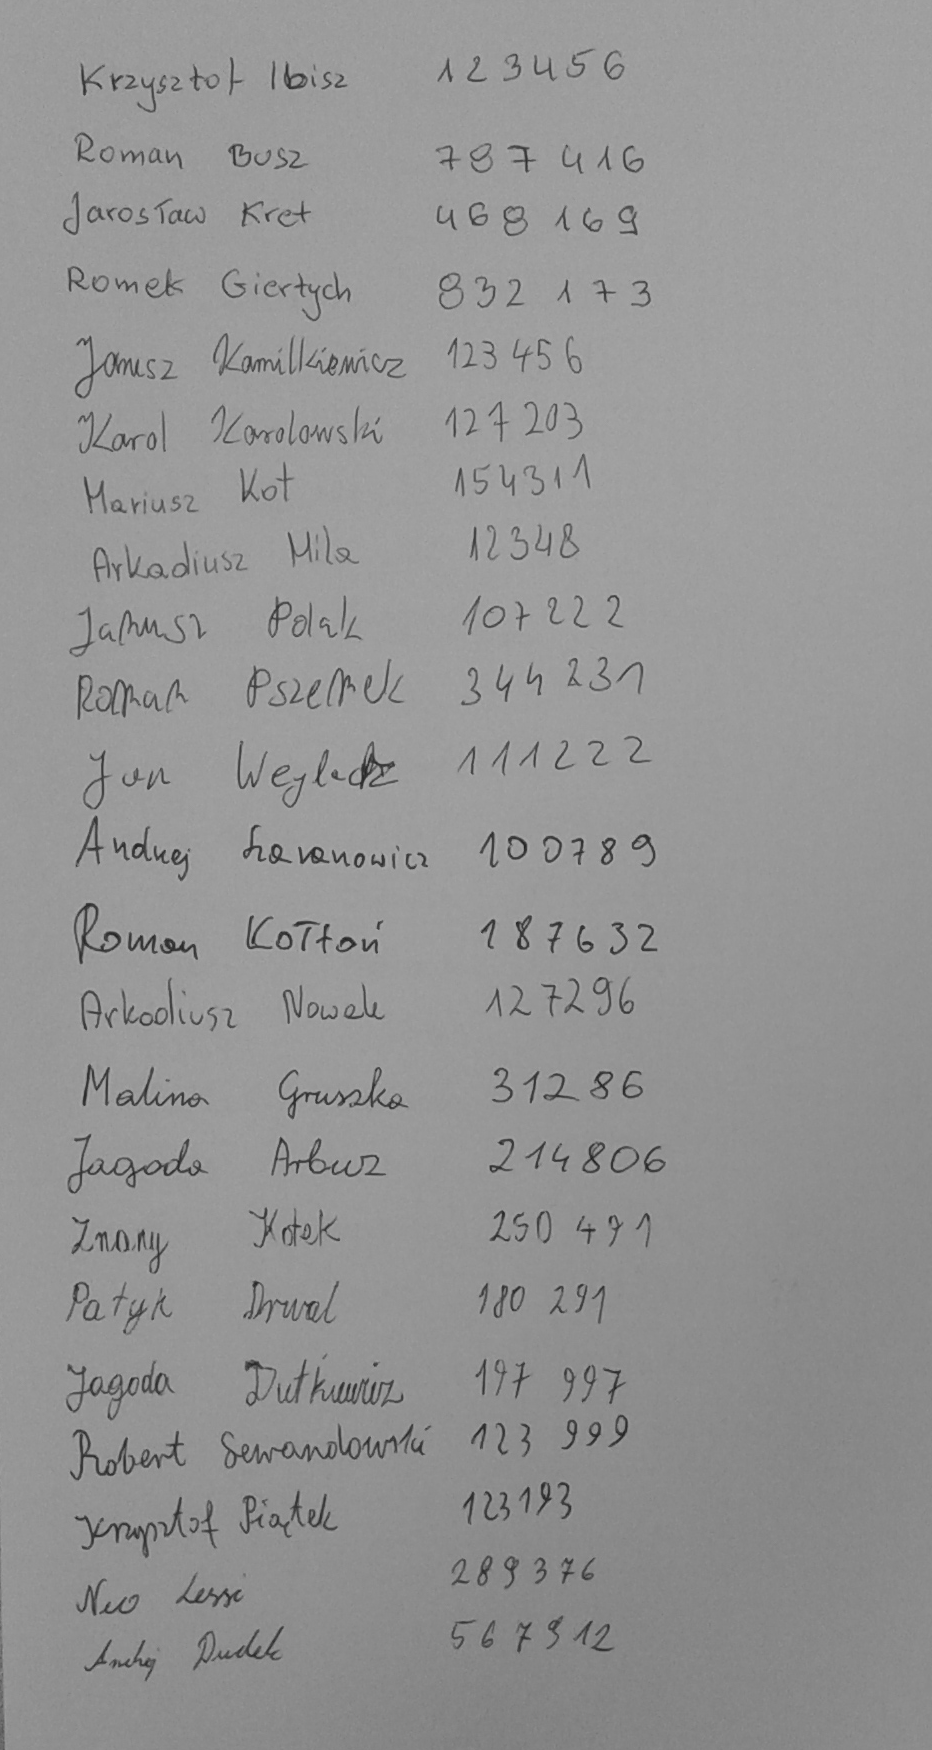 Krzysztof Ibisz 123456
Roman Busz 787 416
Jarosław Kret 468 169
Romek Giertych 832 173
Janusz Kamilkiewicz 123 456
Karol Karolowski 127 203
Mariusz Kot 154311
Arkadiusz Mila 12348
Janusz Polak 107222
Roman Pszemek 344 231
Jan 111222
Andrzej 100789
Roman Kołtoń 187632
Arkadiusz Nowak 127296
Malina Gruszka 31286
Jagoda Arbuz 214806
Znany Kotek 250 491
Patyk Drwal 180 291
Jagoda Dutkiewicz 197 997
Robert Lewandowski 123 999
Krzysztof Piątek 123193
289376
Dudek 567912